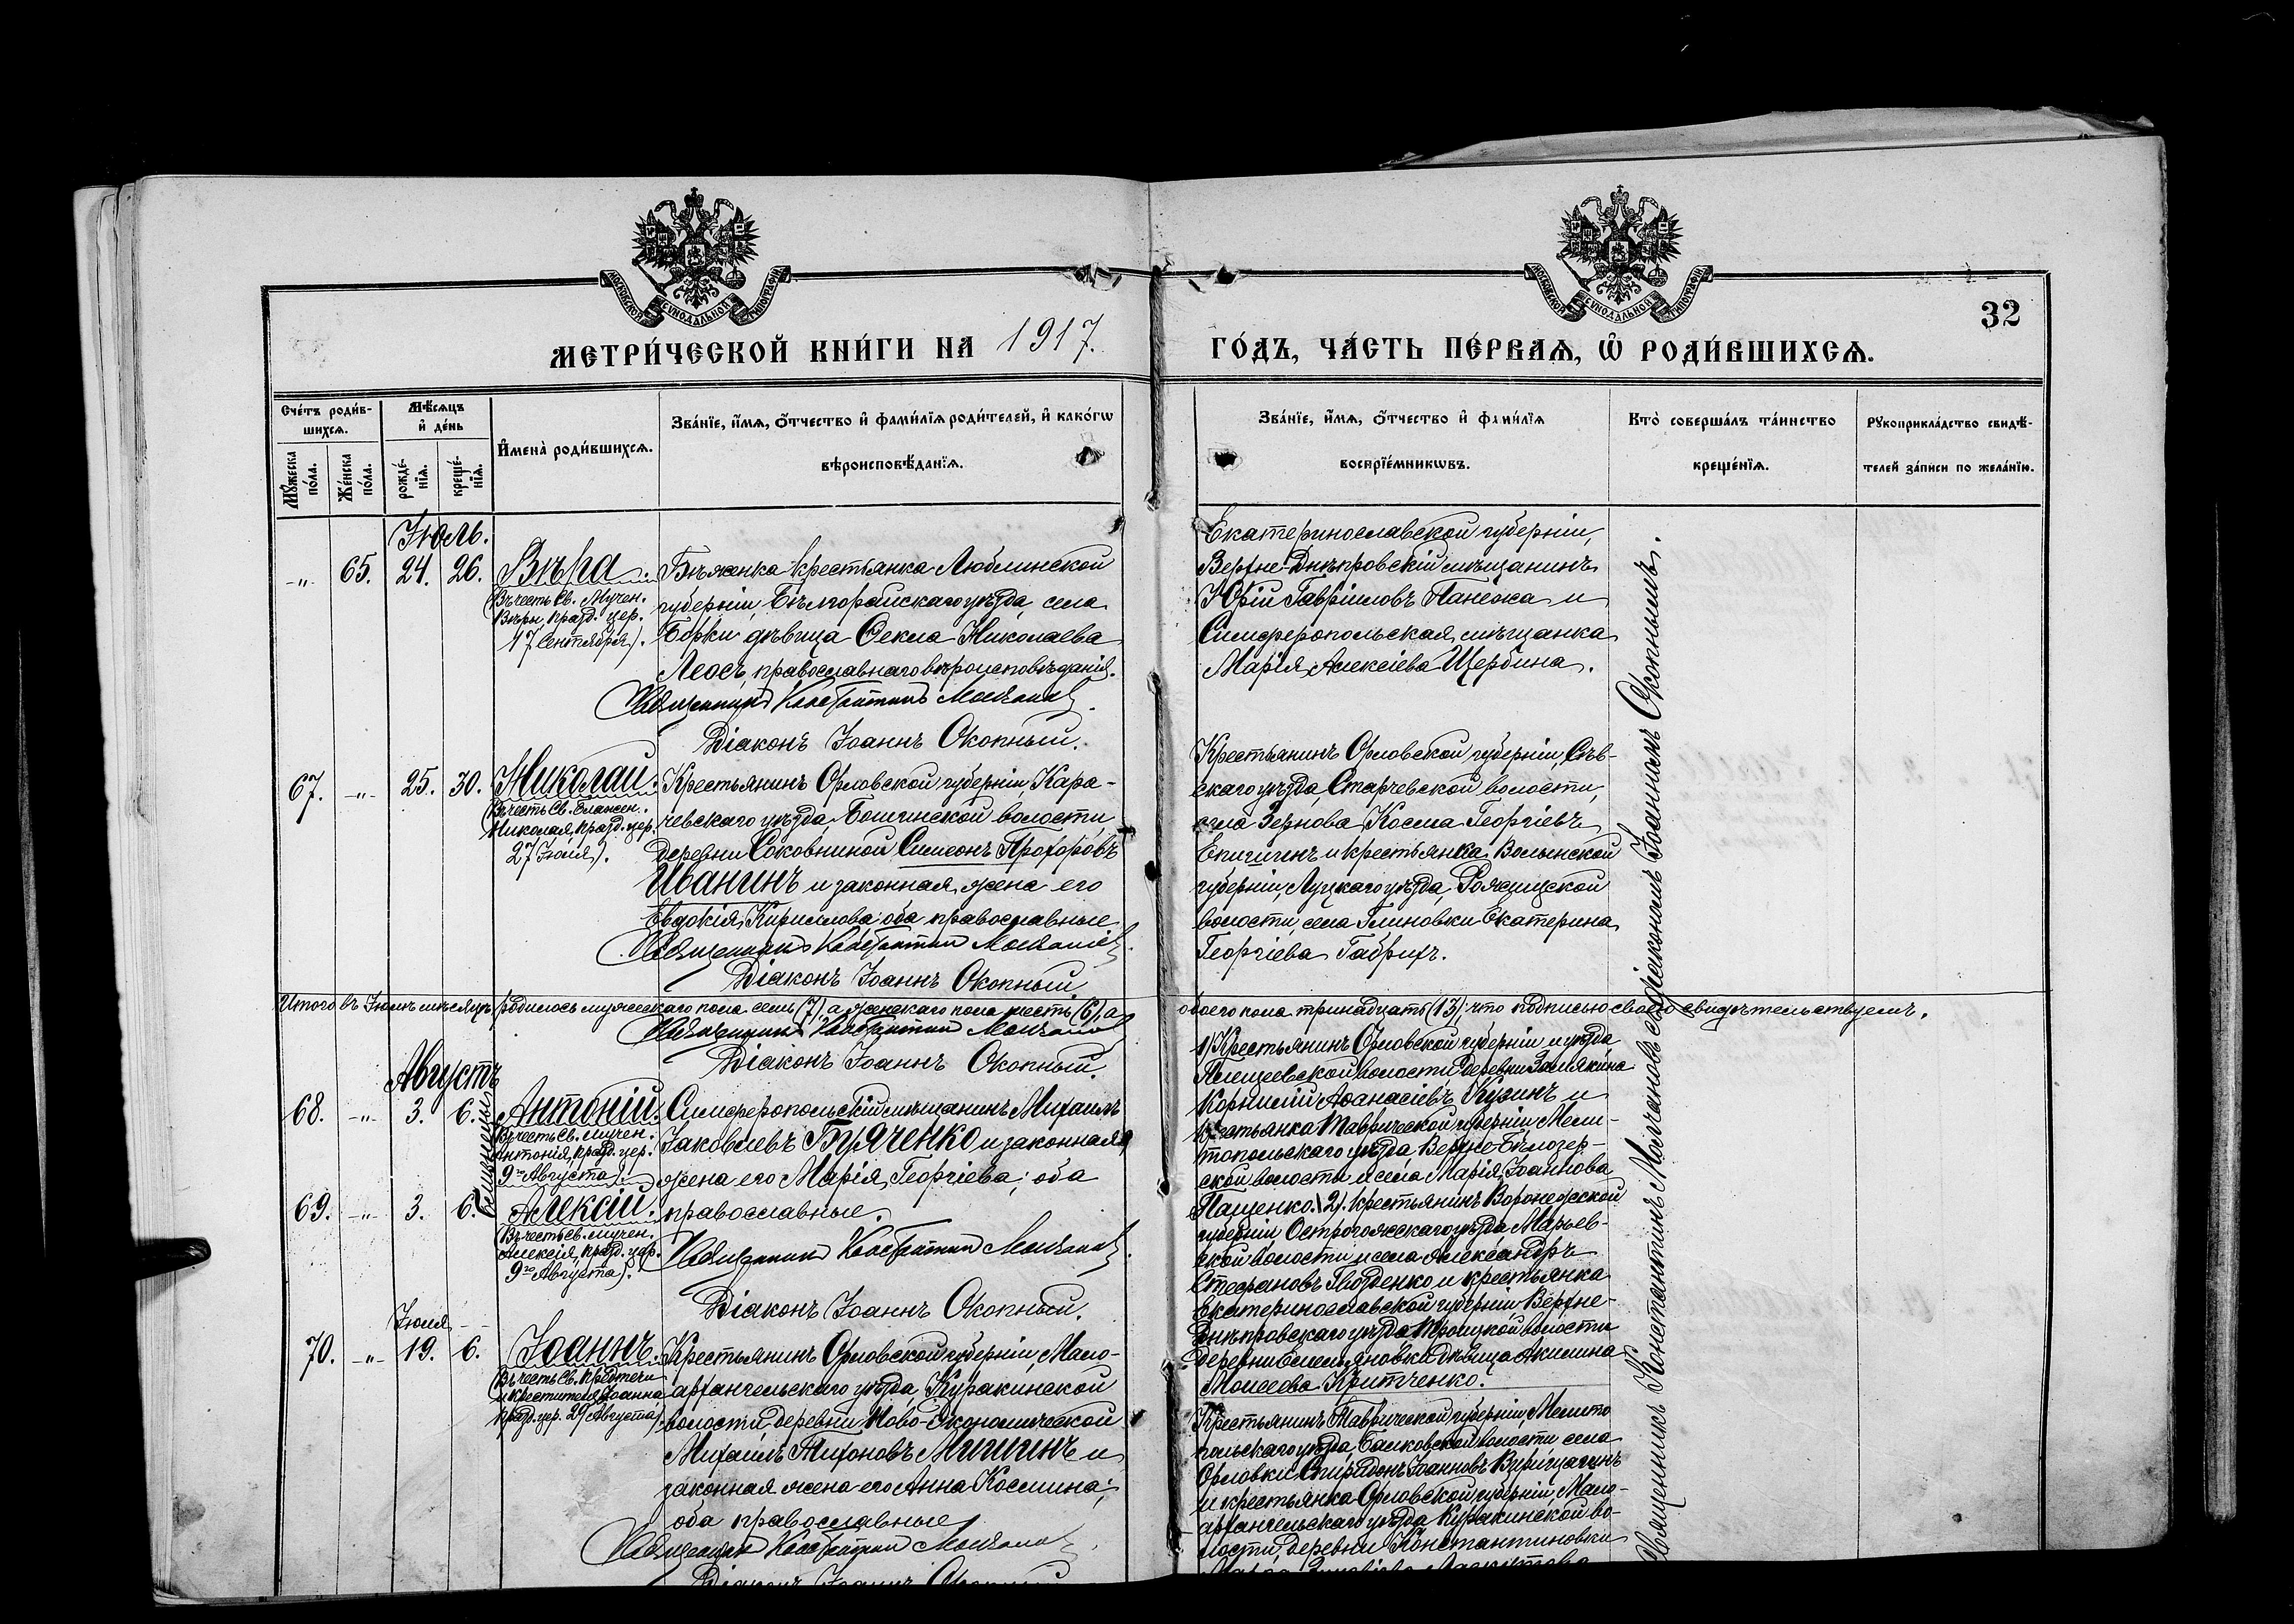 МОСКОВСКОЙ СѴНОДАЛЬНОЙ ТИПОГРАФІИ
МОСКОВСКОЙ СѴНОДАЛЬНОЙ ТИПОГРАФІИ
32
МЕТРИ́ЧЕСКОЙ КНИ́ГИ НА 1917.
ГО́ДЪ, ЧА́СТЬ ПЕ́РВАѦ, Ѡ҆ РОДИ́ВШИХСѦ.
Сче́тъ роди́в-
шихсѧ.
Мꙋ́жеска по́ла.
Же́нска по́ла.
Мѣ́сѧцъ
и҆ де́нь
рожде́-
нїѧ.
креще́-
нїѧ.
И҆мена̀ роди́вшихсѧ.
Зва́нїе, и҆́мѧ, ѻ҆́тчество и҆ фами́лїѧ роди́телей, и҆ како́гѡ
вѣроисповѣ́данїѧ.
Зва́нїе, и҆́мѧ, ѻ҆́тчество и҆ фами́лїѧ
воспрїе́мникѡвъ.
Кто̀ соверша́лъ та́инство
креще́нїѧ.
Рꙋкоприкла́дство свидѣ́-
телей за́писи по жела́нїю.
Іюль.
-"- 65. 24. 26. Вѣра.
(Въ честь Св. Мучен.
Вѣры, празд. цер.
17 Сентября).
Бѣженка крестьянка Люблинской
губерніи, Бѣлгорайскаго уѣзда, села
Борки дѣвица Ѳекла Николаева
Леосъ, православнаго вѣроисповѣданія.
Священникъ Константинъ Молчановъ.
Діаконъ Іоаннъ Окопный.
Екатеринославской губерніи,
Верхне-Днѣпровскій мѣщанинъ
Юрій Гавріиловъ Панежа и
Симферопольская мѣщанка
Марія Алексіева Щербина.
67. -"- 25. 30. Николай.
(Въ честь Св. блажен.
Николая, празд. цер.
27 Іюля).
Крестьянинъ Орловской губерніи, Кара-
чевскаго уѣзда, Бошинской волости
деревни Соковниной Симеонъ Прохоровъ
Иванинъ и законная жена его
Евдокія Кириллова; оба православные.
Священникъ Константинъ Молчановъ.
Діаконъ Іоаннъ Окопный
Крестьянинъ Орловской губерніи, Сѣв-
скаго уѣзда, Старчевской волости,
села Зернова Косма Георгіевъ
Епишенъ и крестьянка Волынской
губерніи, Луцкаго уѣзда, Рожищской
волости, села Глиновки Екатерина
Георгіева Габрихъ.
Итого въ Іюлѣ мѣсяцѣ родилось мужескаго пола семь (7), а женскаго пола шесть (6), а обоего пола тринадцать (13); что подписью своею свидѣтельствуемъ.
Священникъ Константинъ Молчановъ
Діаконъ Іоаннъ Окопный.
Августъ
Близнецы
68. -"- 3. 6. Антоній.
(Въ честь Св. мучен.
Антонія, празд. цер.
9го Августа).
Симферопольскій мѣщанинъ Михаилъ
Іаковлевъ Бряченко и законная
жена его Марія Георгіева; оба
69. -"- 3. 6. Алексій.
(Въ честь св. мучен.
Алексія, празд. цер.
9го Августа).
православные.
Священникъ Константинъ Молчановъ.
Діаконъ Іоаннъ Окопный.
1) Крестьянинъ Орловской губерніи и уѣзда
Плещеевской волости, деревни
Корнилій Аѳанасіевъ Кузинъ и
крестьянка Таврической губерніи, Мели-
топольскаго уѣзда, Верхне-Бѣлозер-
ской волости и села Марія Іоаннова
Пащенко. 2). Крестьянинъ Воронежской
губерніи Острогожскаго уѣзда Марьев-
ской волости и села Александръ
Стефановъ Гвозденко и крестьянка
Екатеринославской губерніи Верхне-
Днѣпровскаго уѣзда Троицкой волости
деревни дѣвица Акилина
Моисеева Критченко.
Іюля
70. -"- 19. 6. Іоаннъ.
(Въ честь Св. предтечи
и крестителя Іоанна
празд. цер. 29 Августа).
Крестьянинъ Орловской губерніи, Мало-
архангельскаго уѣзда, Куракинской
волости, деревни Ново-Экономической
Михаилъ Тихоновъ Мишинъ и
законная жена его Анна Космина;
оба православные
Священникъ Константинъ Молчановъ.
Діаконъ Іоаннъ Окопный
Крестьянинъ Таврической губерніи Мелито
польскаго уѣзда, Балковской волости села
Орловки Спиридонъ Іоанновъ
и крестьянка Орловской губерніи, Мало-
архангельскаго уѣзда Куракинской во-
лости, деревни Константиновки
Священникъ Константинъ Молчановъ съ діакономъ Іоанномъ Окопнымъ.